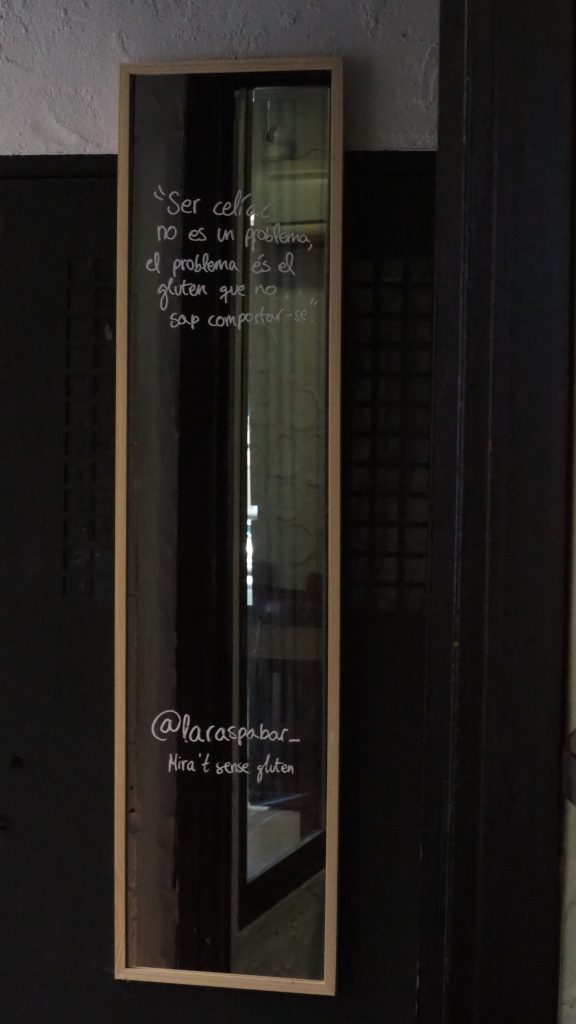 "Ser celíac
no es un problema,
el problema és el
gluten que no
sap comportar-se."
@laraspabar_
Mira't sense gluten